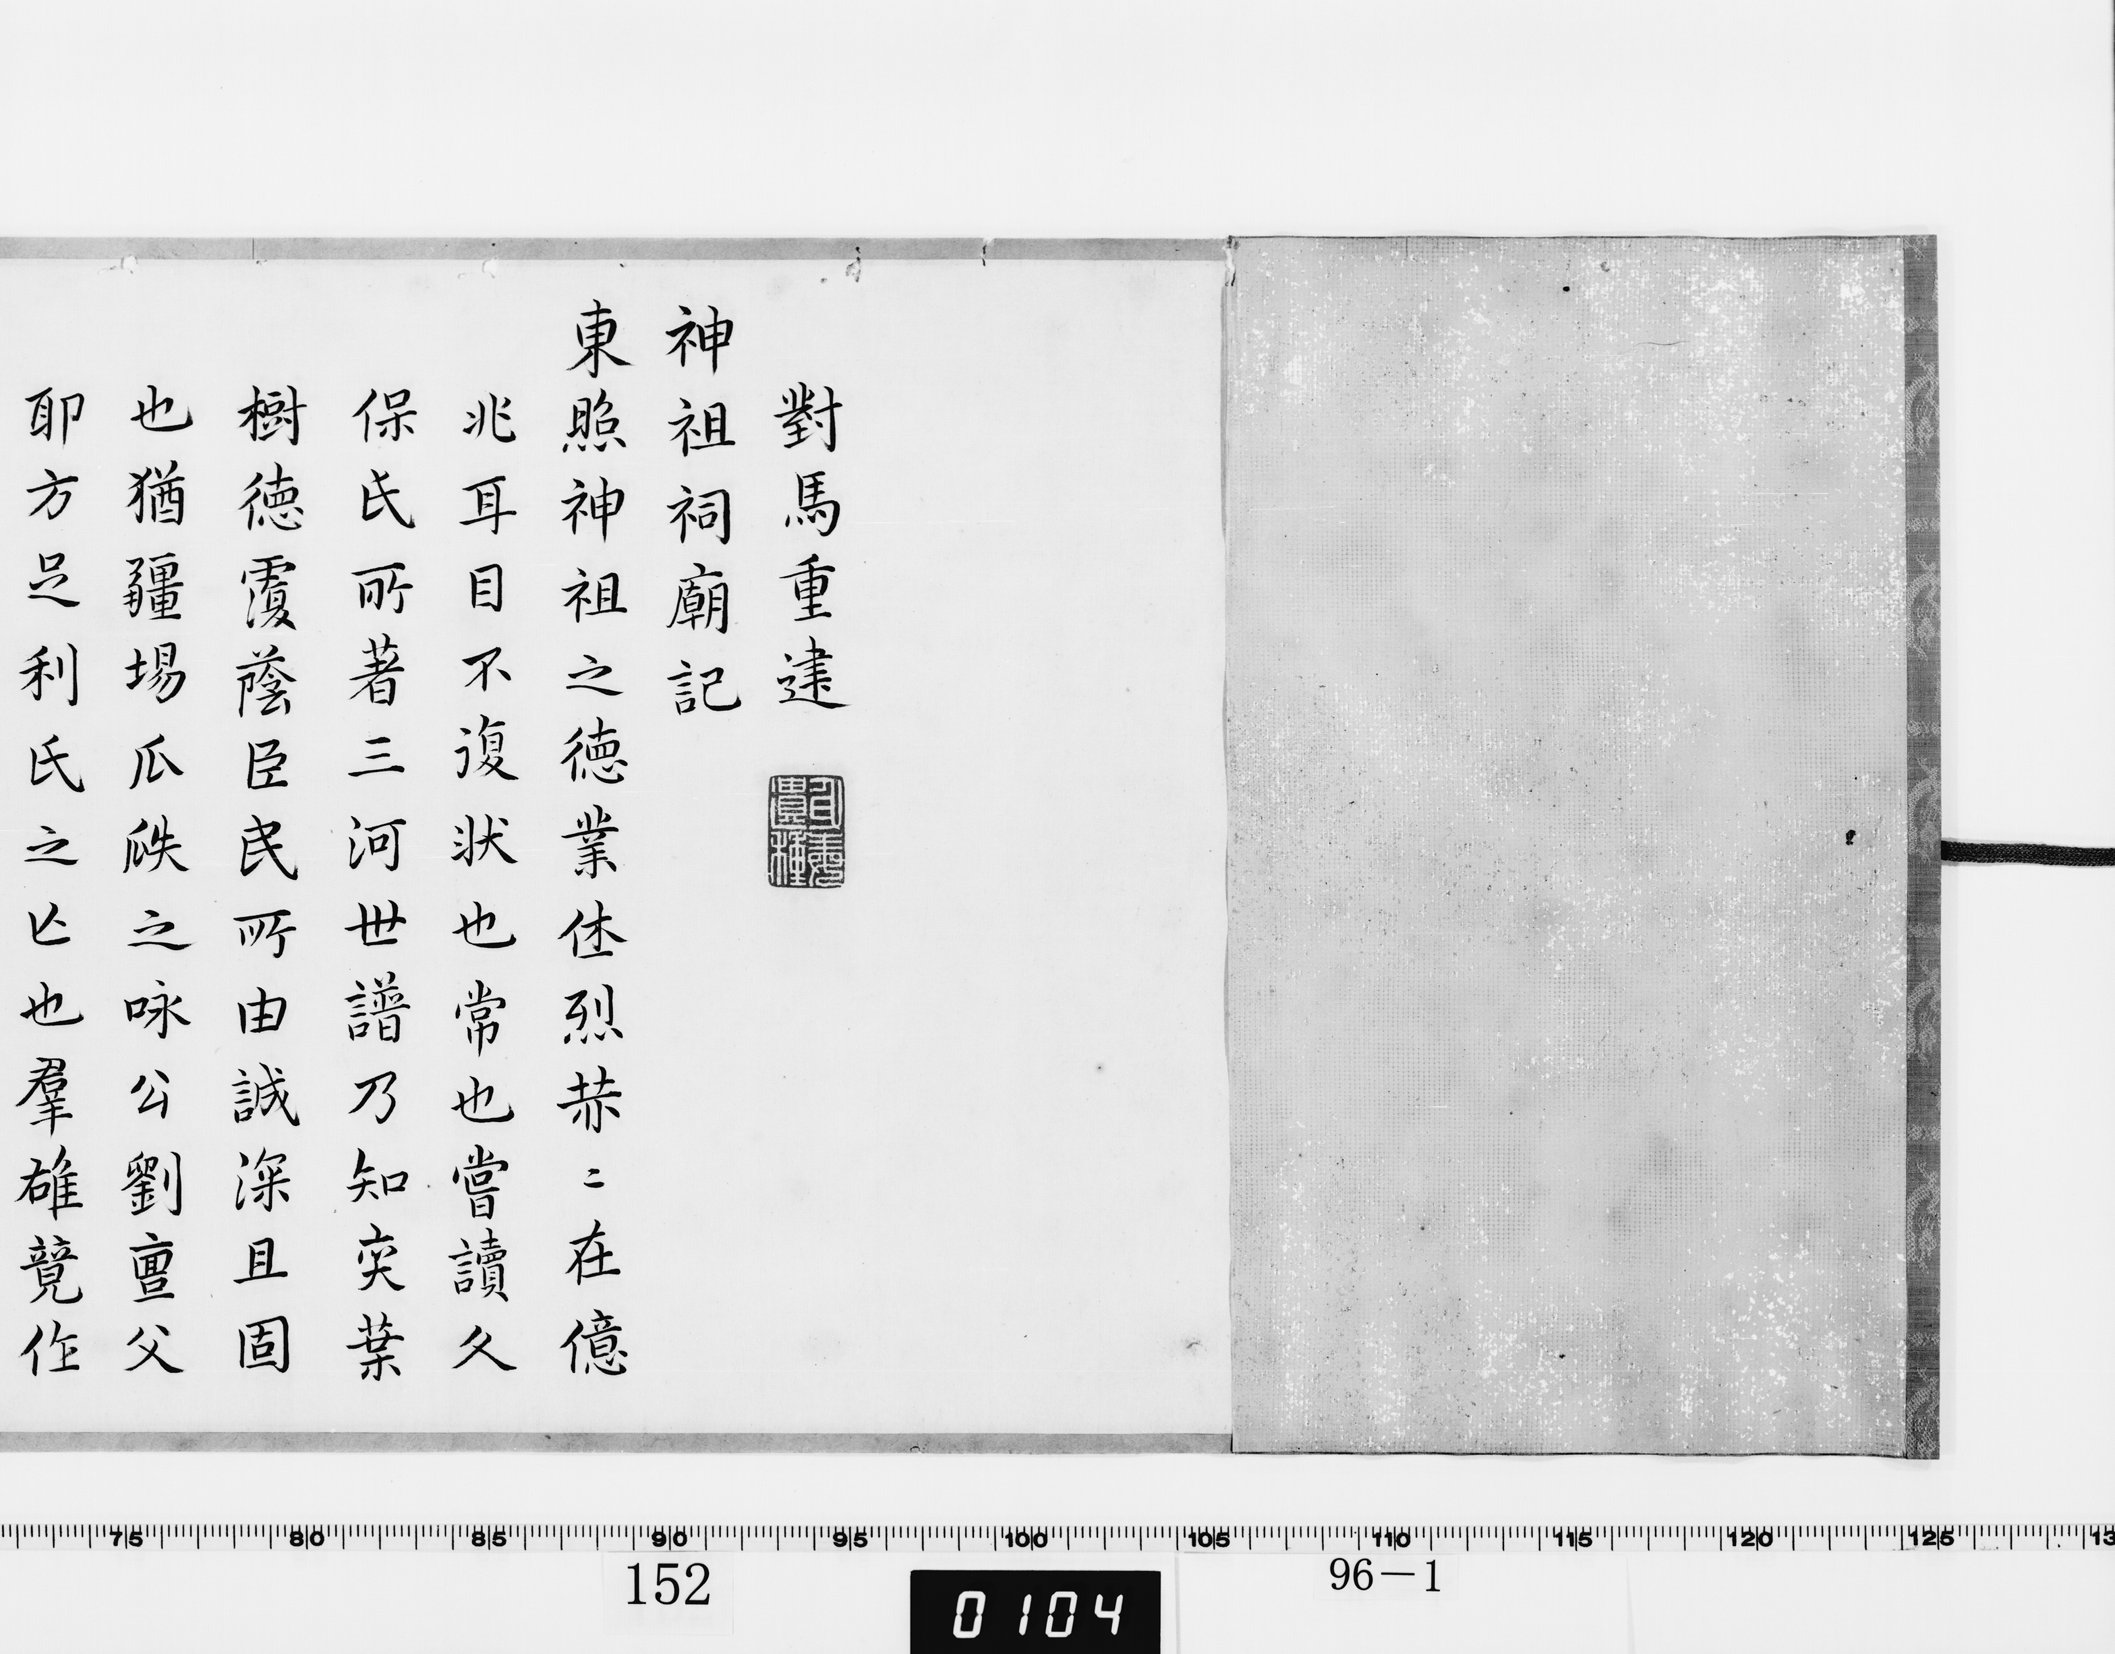 對馬重建
神祖祠廟記
東照神祖之徳業休烈赫〻在億
兆耳目不復狀也常也嘗讀久
保氏所著三河世譜乃知奕葉
樹徳覆蔭臣民所由誠深且固
也猶疆埸瓜瓞之咏公劉亶父
耶方足利氏之亡也羣雄競作
75 80 85 90 95 100 105 110 115 120 125 13
152
0104
96-1